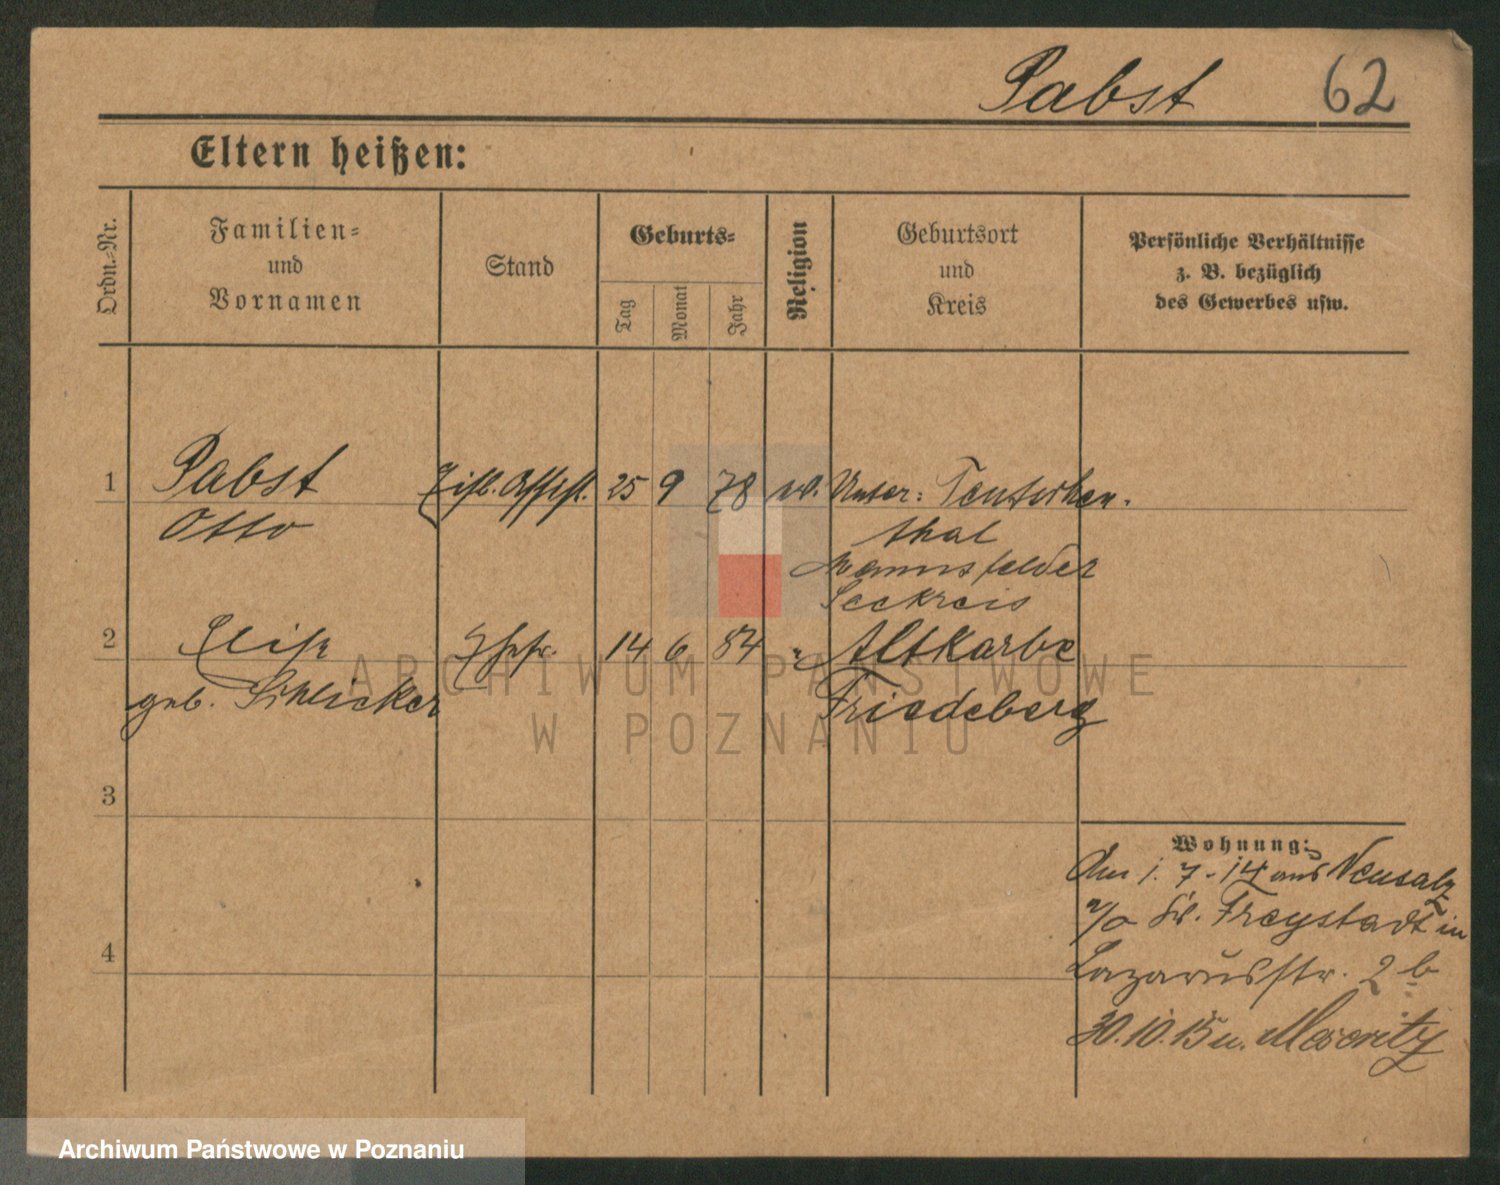 Pabst 62
Eltern heißen:
Ordn.-Nr.
Familien-
und
Vornamen
Stand
Geburts-
Tag
Monat
Jahr
Religion
Geburtsort
und
Kreis
Persönliche Verhältnisse
z. B. bezüglich
des Gewerbes usw.
1 Pabst 25 9 78 ev. Unter: Teutschen-
Otto thal
Mannsfelder
Seekreis
2 Elise Ehefr. 14 6 84 " Altkarbe
geb. Schlicker Friedeberg
3
4
Wohnung:
Am 1. 7. 14 aus Neusalz
a/O Kr. Freystadt in
Lazarusstr. 2 b
30.10.15 n. Meseritz
ARCHIWUM PAŃSTWOWE
W POZNANIU
Archiwum Państwowe w Poznaniu